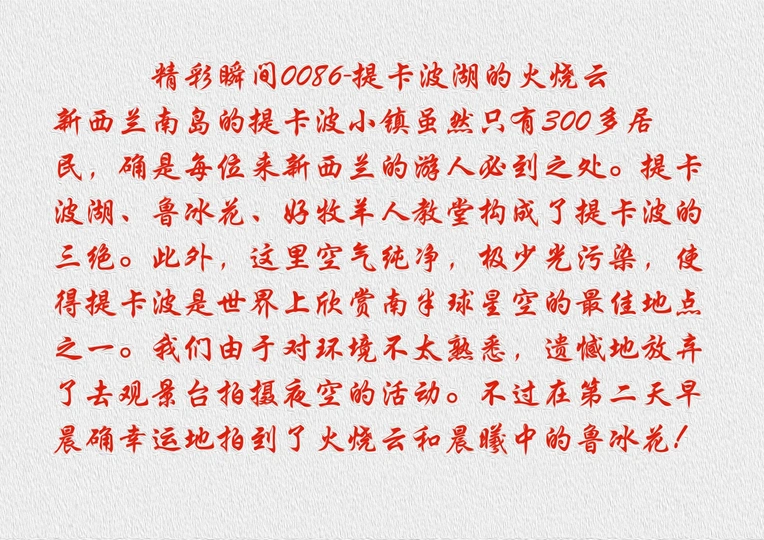 精彩瞬间0086-提卡波湖的火烧云
新西兰南岛的提卡波小镇虽然只有300多居
民，确是每位来新西兰的游人必到之处。提卡
波湖、鲁冰花、好牧羊人教堂构成了提卡波的
三绝。此外，这里空气纯净，极少光污染，使
得提卡波是世界上欣赏南半球星空的最佳地点
之一。我们由于对环境不太熟悉，遗憾地放弃
了去观景台拍摄夜空的活动。不过在第二天早
晨确幸运地拍到了火烧云和晨曦中的鲁冰花！